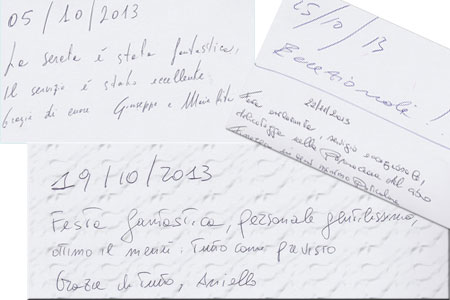 05/10/2013
La serata è stata fantastica,
Il servizio è stato eccellente.
Grazie di cuore Giuseppe e Maria Rita
25/10/13
Eccezionale!
Festa
servizio eccezionale,
nella del cibo
19/10/2013
Festa fantastica, personale gentilissimo,
ottimo il menù. Tutto come previsto
Grazie di Tutto, Aniello